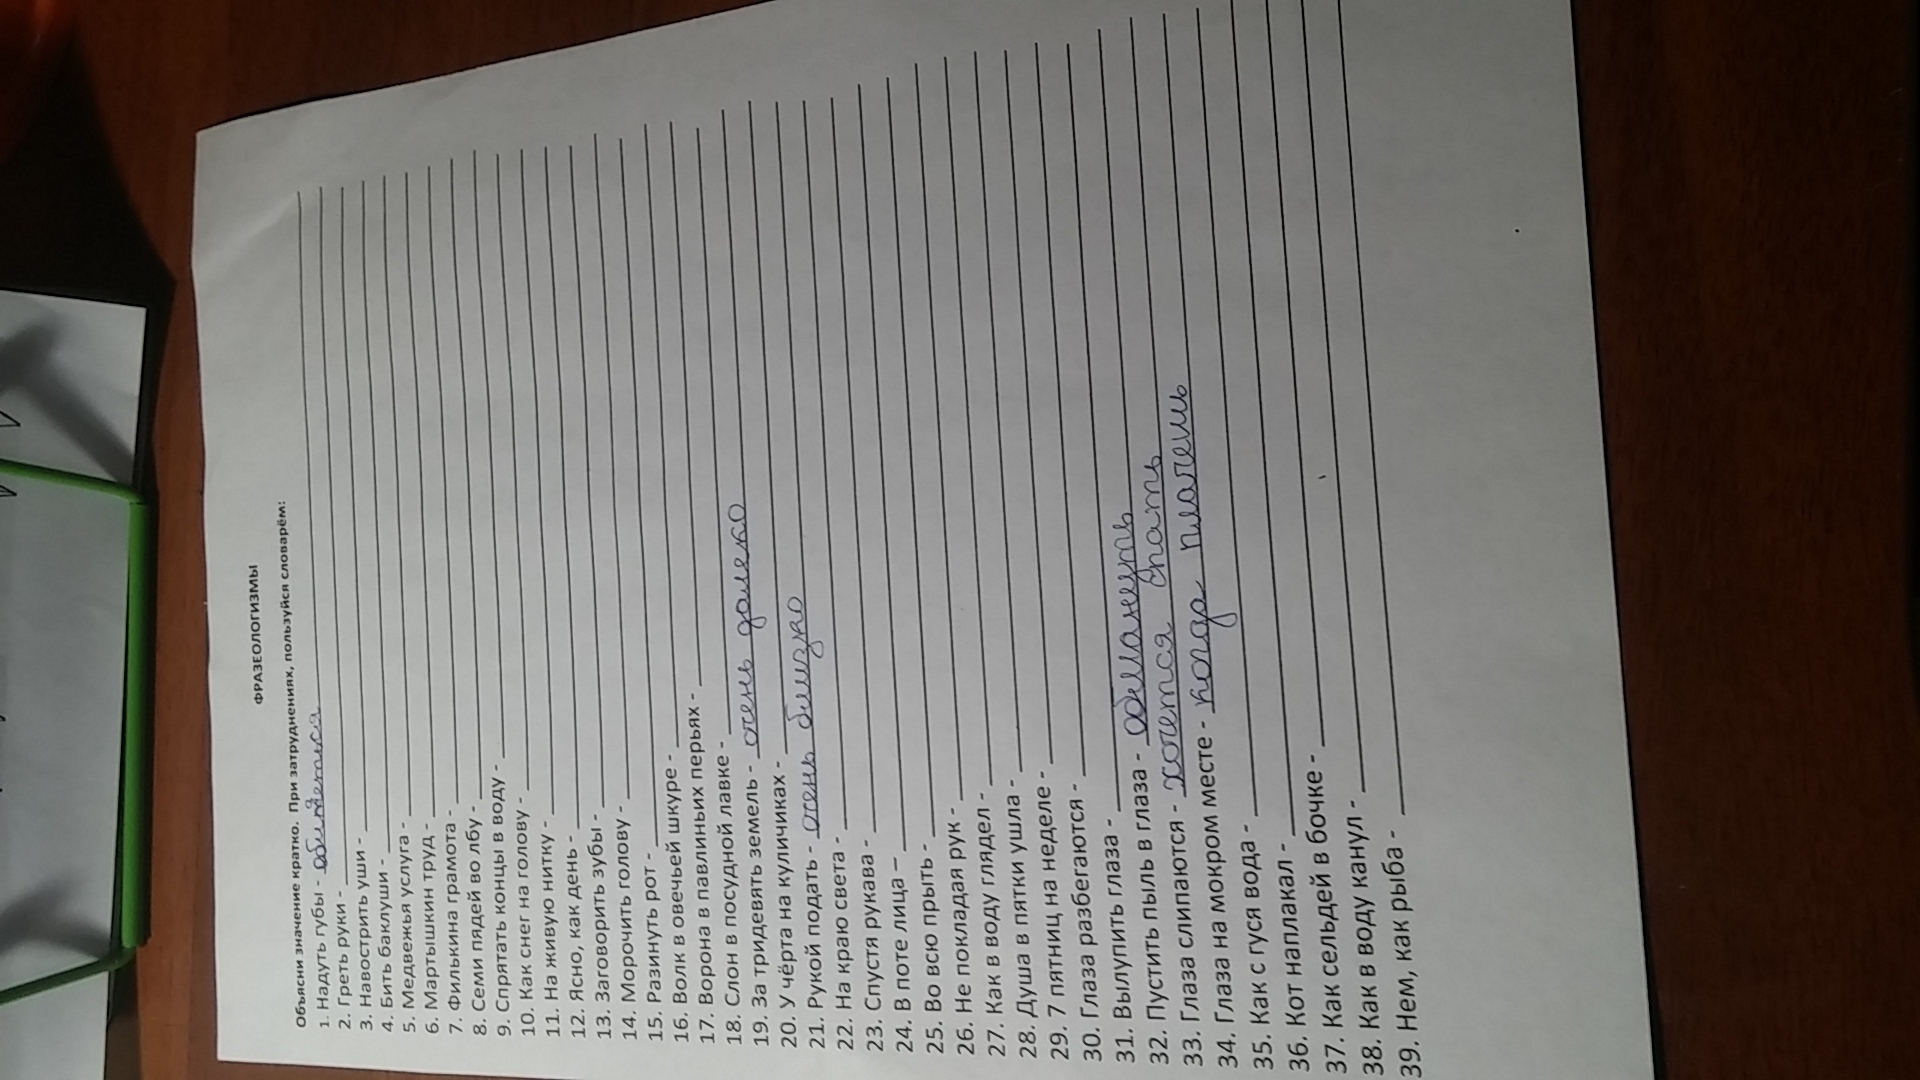 ФРАЗЕОЛОГИЗМЫ
Объясни значение кратко. При затруднениях, пользуйся словарём:
1. Надуть губы - обидется
2. Греть руки -
3. Навострить уши -
4. Бить баклуши -
5. Медвежья услуга -
6. Мартышкин труд -
7. Филькина грамота -
8. Семи пядей во лбу -
9. Спрятать концы в воду -
10. Как снег на голову -
11. На живую нитку -
12. Ясно, как день -
13. Заговорить зубы -
14. Морочить голову -
15. Разинуть рот -
16. Волк в овечьей шкуре -
17. Ворона в павлиньих перьях -
18. Слон в посудной лавке -
19. За тридевять земель - очень далеко
20. У чёрта на куличиках -
21. Рукой подать - очень близко
22. На краю света -
23. Спустя рукава -
24. В поте лица –
25. Во всю прыть -
26. Не покладая рук -
27. Как в воду глядел -
28. Душа в пятки ушла -
29. 7 пятниц на неделе -
30. Глаза разбегаются -
31. Вылупить глаза -
32. Пустить пыль в глаза - обмануть
33. Глаза слипаются - хочется спать
34. Глаза на мокром месте - когда плачешь
35. Как с гуся вода -
36. Кот наплакал -
37. Как сельдей в бочке -
38. Как в воду канул -
39. Нем, как рыба -